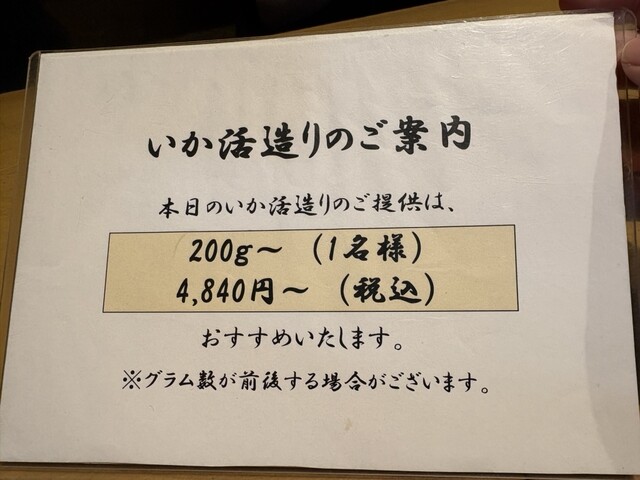 いか活造りのご案内
本日のいか活造りのご提供は、
200g～（1名様）
4,840円～（税込）
おすすめいたします。
※グラム数が前後する場合がございます。